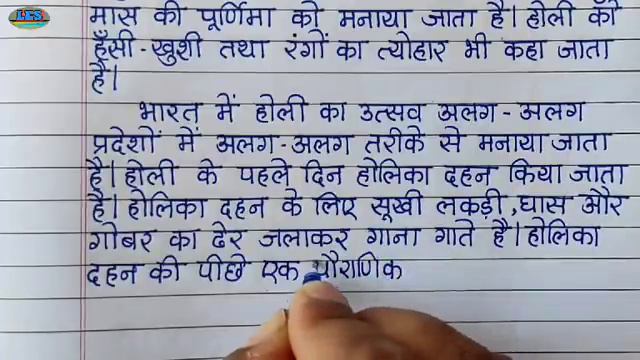 LES
मास की पूर्णिमा को मनाया जाता है। होली को
हँसी-खुशी तथा रंगों का त्योहार भी कहा जाता
है।
भारत में होली का उत्सव अलग-अलग
प्रदेशों में अलग-अलग तरीके से मनाया जाता
है। होली के पहले दिन होलिका दहन किया जाता
है। होलिका दहन के लिए सूखी लकड़ी ,घास और
गोबर का ढेर जलाकर गाना गाते है। होलिका
दहन की पीछे एक पौराणिक